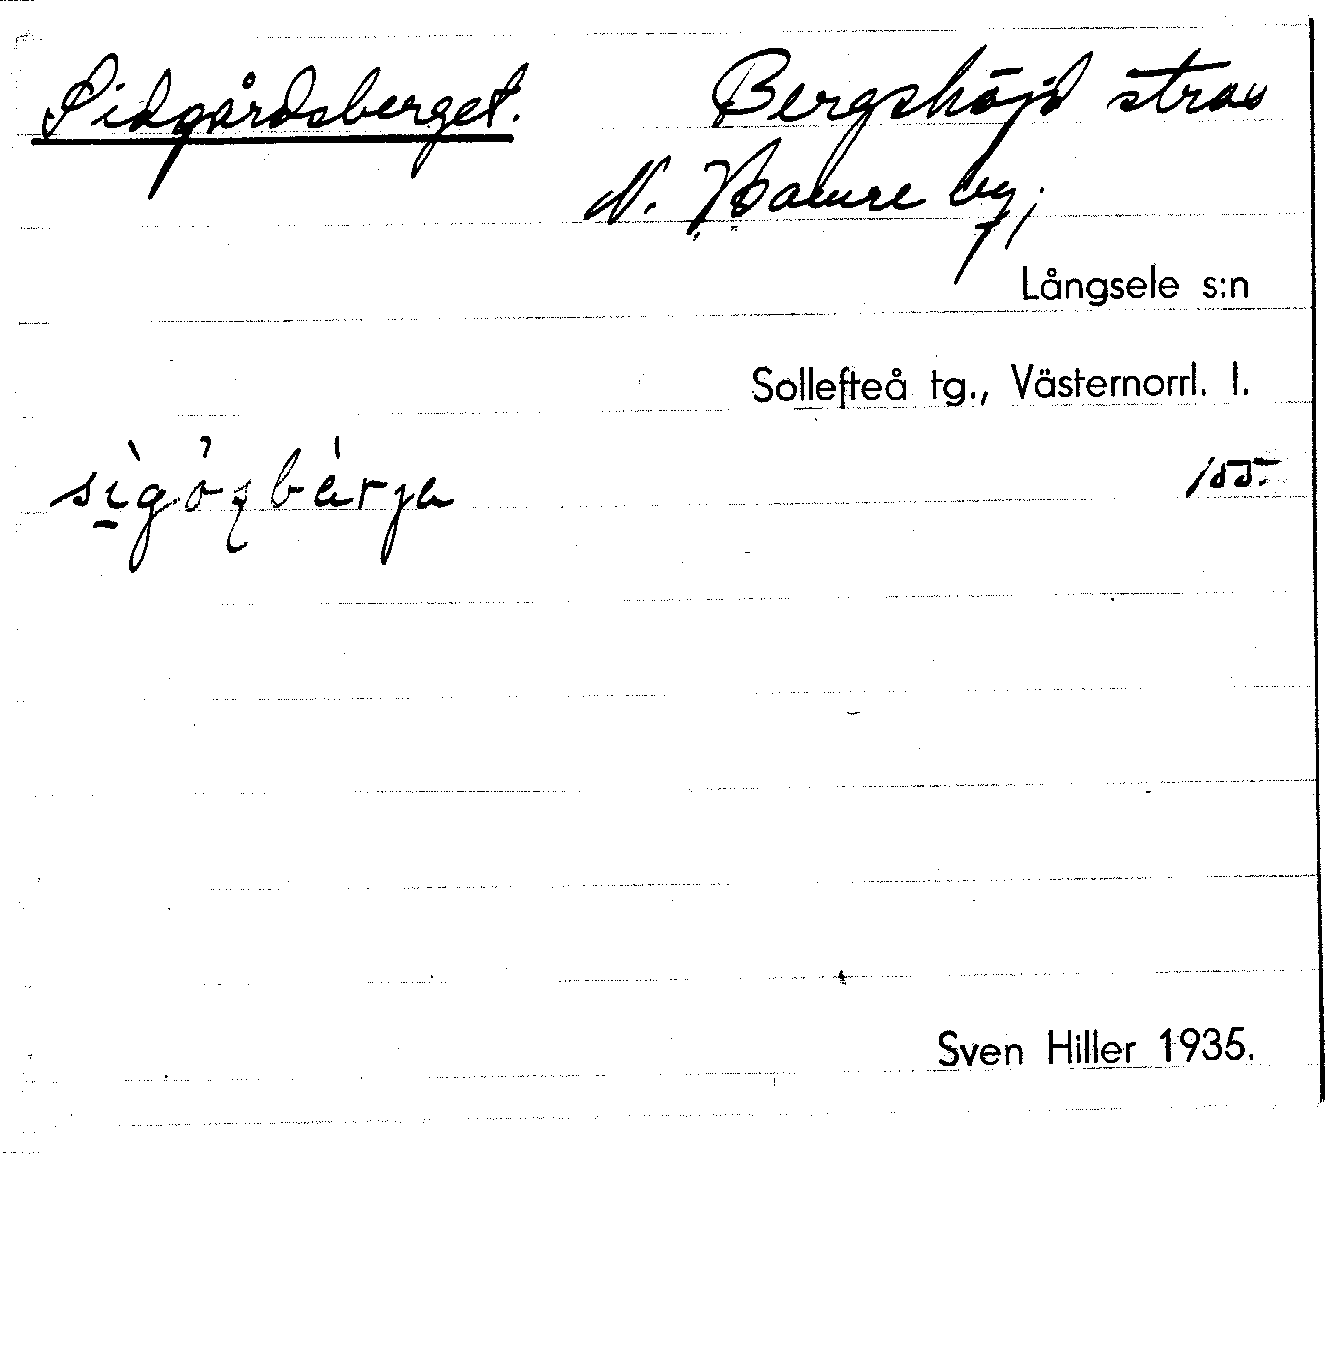 Sidgårdsberget. Bergshöjd strax
N. Hamre by;
Långsele s:n
Sollefteå tg., Västernorrl. l.
155.
Sven Hiller 1935.